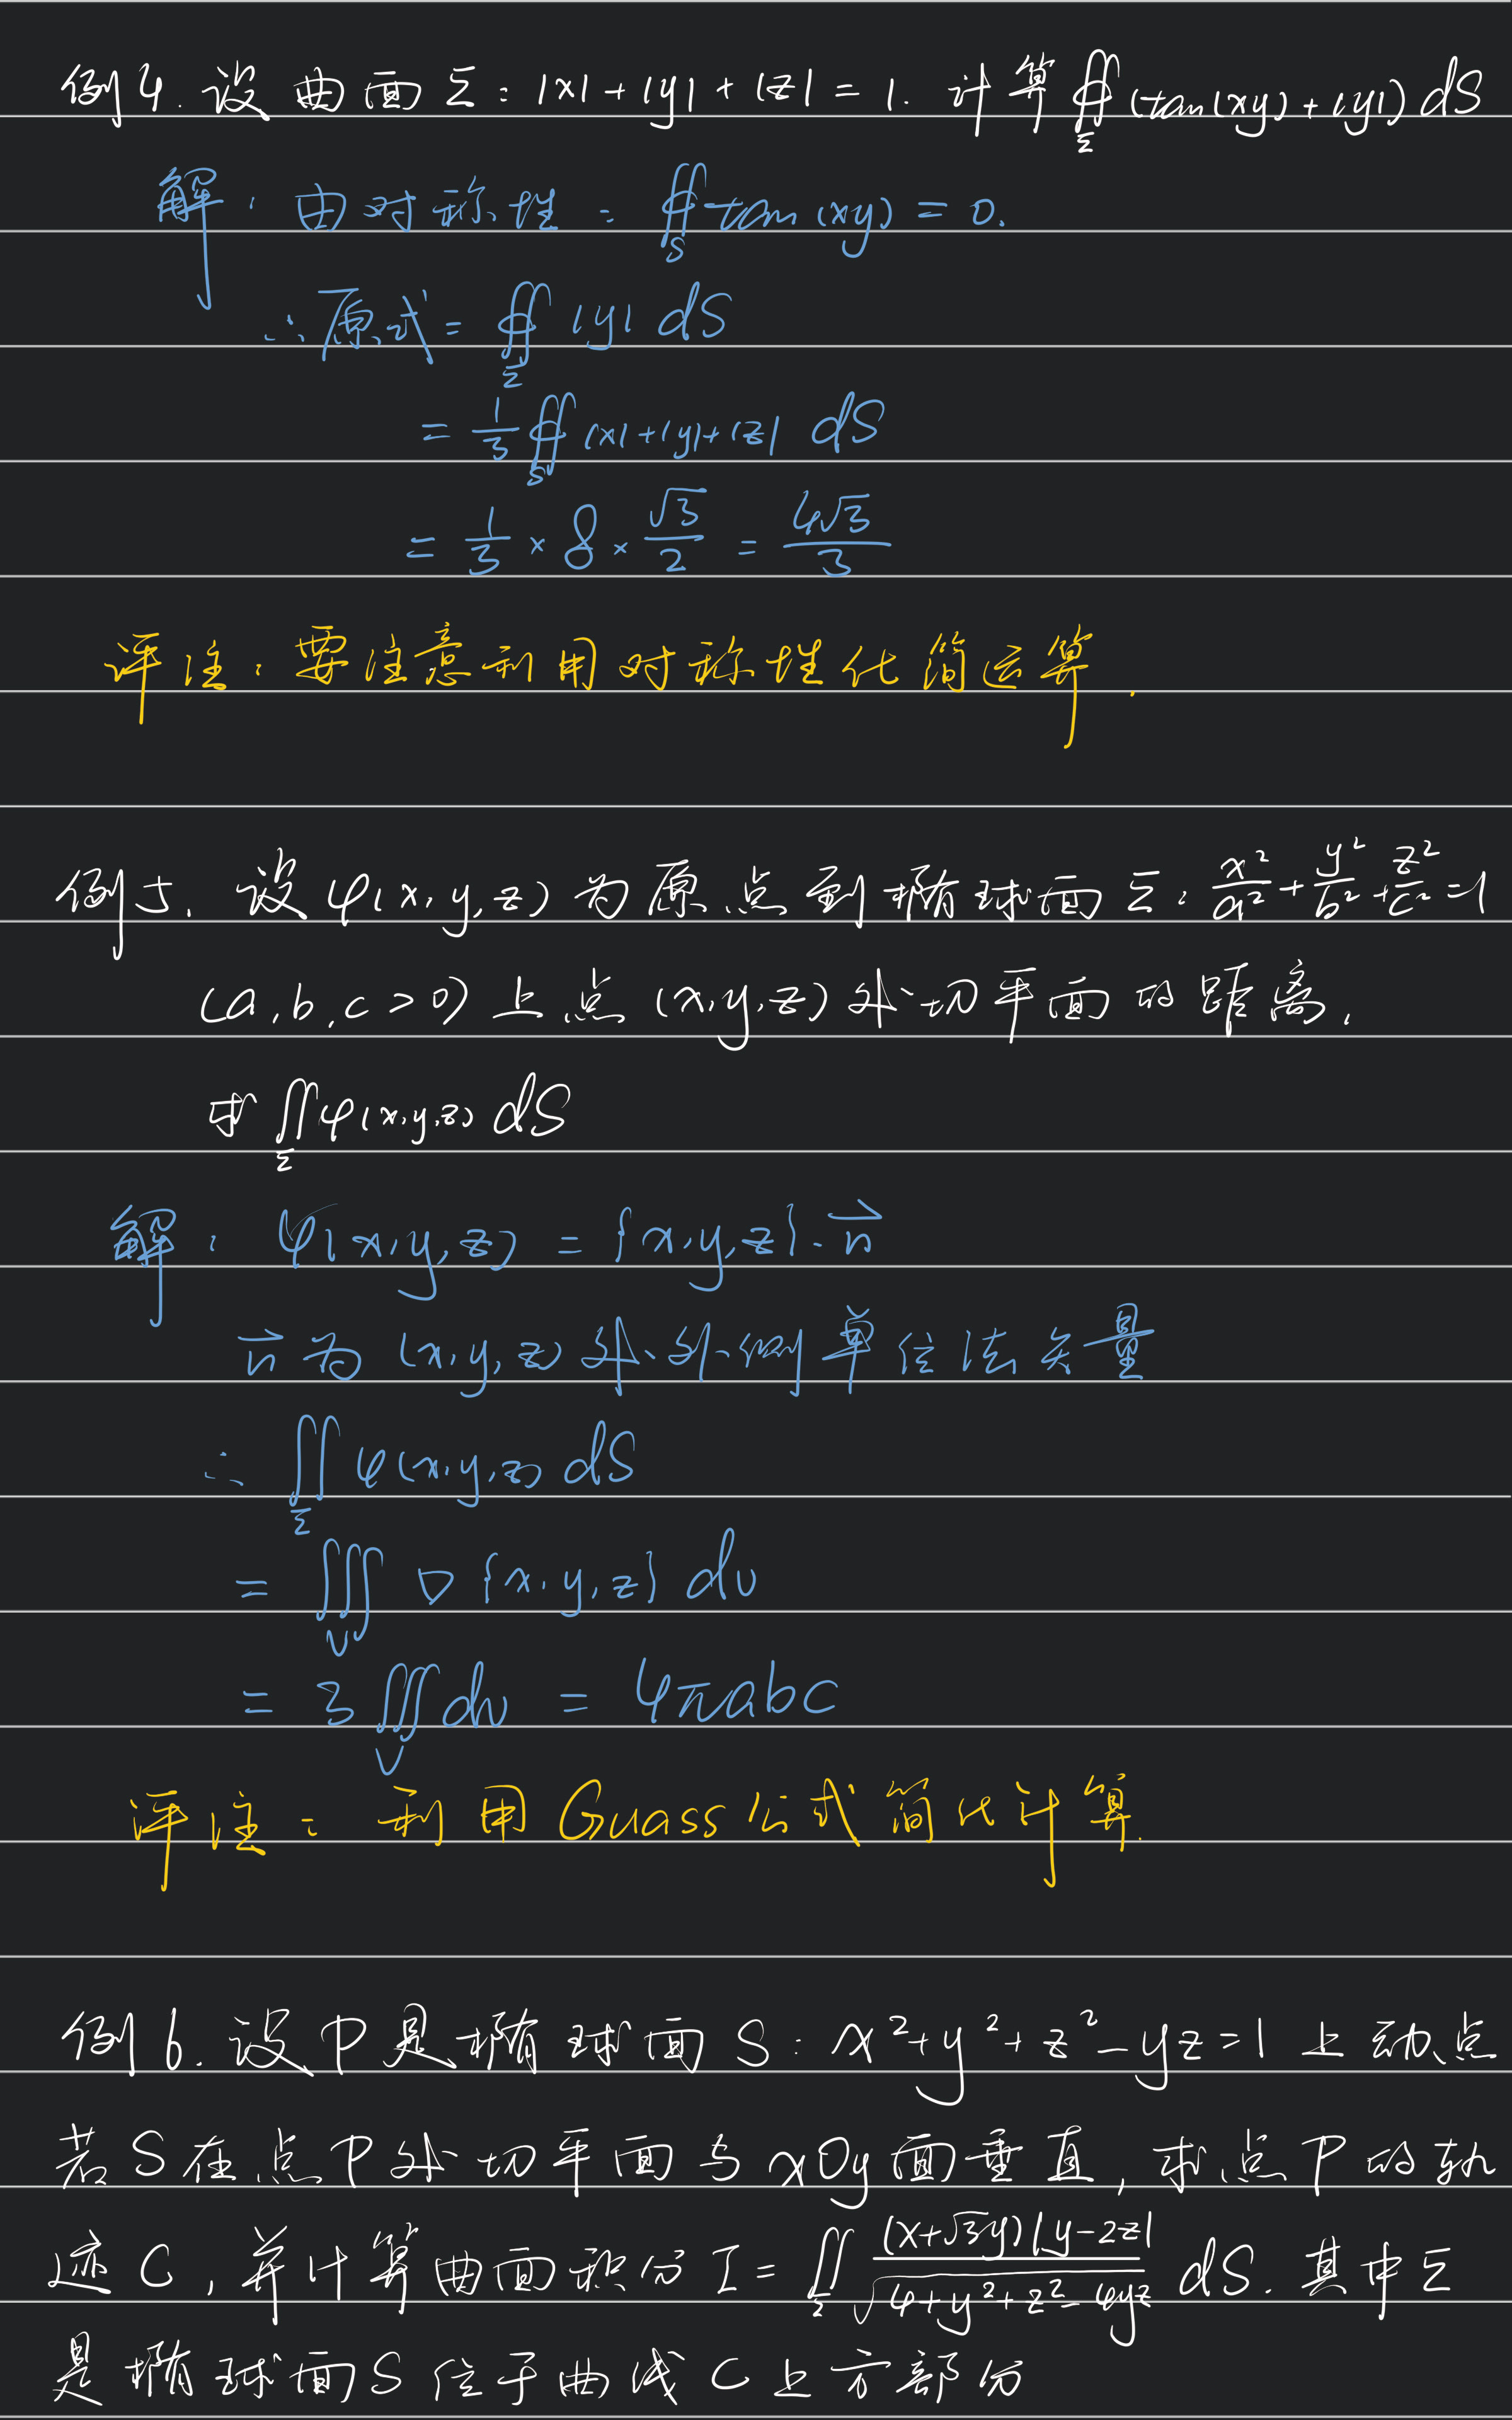 例4. 设曲面Σ: |x|+|y|+|z|=1. 计算∯_Σ(tan(xy)+|y|)dS
解: 由对称性: ∯_S tan(xy)=0.
∴原式=∯_Σ |y| dS
=1/3 ∯_S |x|+|y|+|z| dS
=1/3×8×√3/2=4√3/3
评注: 要注意利用对称性化简运算.
例5. 设φ(x,y,z)为原点到椭球面Σ: x²/a²+y²/b²+z²/c²=1
(a,b,c>0)上点(x,y,z)处切平面的距离,
求∬_Σ φ(x,y,z) dS
解: φ(x,y,z)={x,y,z}·n⃗
n⃗为(x,y,z)处外侧单位法矢量
∴ ∬_Σ φ(x,y,z) dS
=∭_V ∇{x,y,z} dv
=3∭_V dv=4πabc
评注: 利用Guass公式简化计算.
例6. 设P是椭球面S: x²+y²+z²-yz=1上动点
若S在点P处切平面与xOy面垂直,求点P的轨
迹C,并计算曲面积分I=∬_Σ (x+√3y)|y-2z|/√(4+y²+z²-4yz) dS. 其中Σ
是椭球面S位于曲线C上方部分